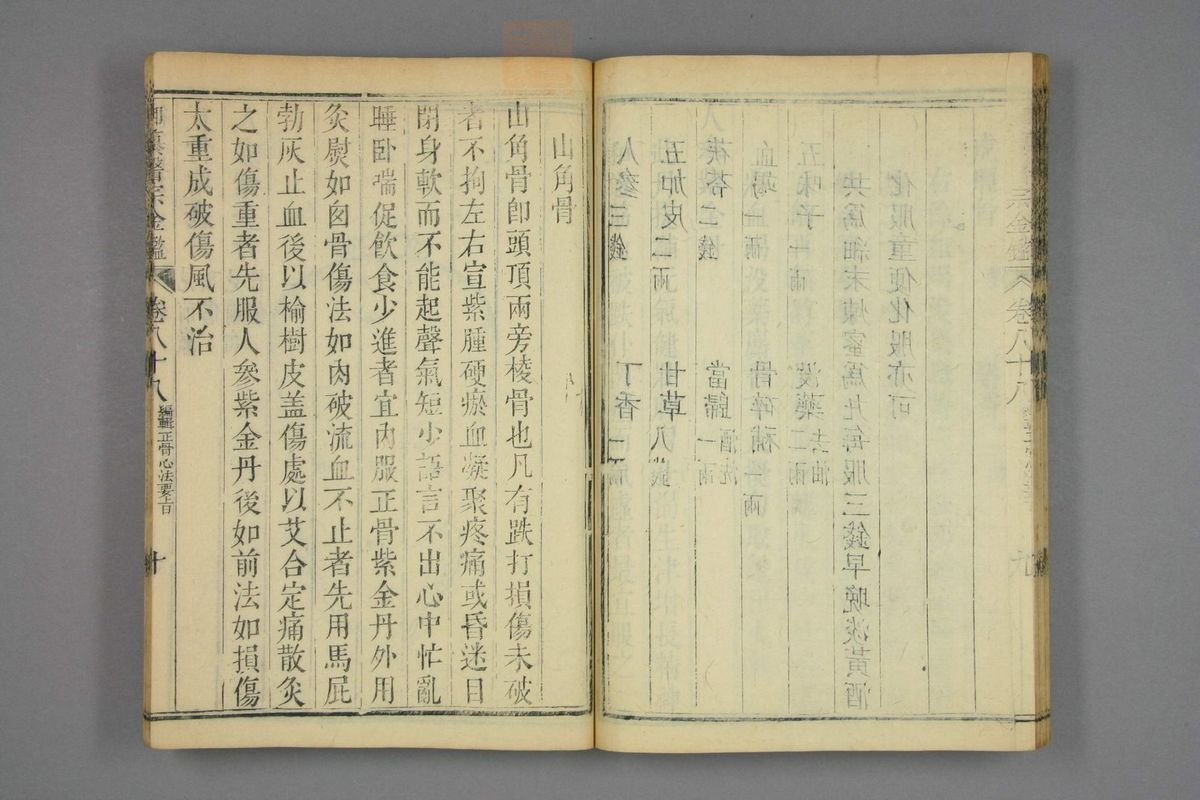 人參三錢 丁香一兩
五加皮二兩 甘草八錢
茯苓二錢 當歸酒洗一兩
血竭一兩 骨碎補一兩
五味子一兩 沒藥去油二兩
共爲細末煉蜜爲丸每服三錢早晚淡黃酒
化服童便化服亦可
宗金鑑 卷八十八 九
山角骨
山角骨卽頭頂兩旁棱骨也凡有跌打損傷未破
者不拘左右宣紫腫硬瘀血凝聚疼痛或昏迷目
閉身軟而不能起聲氣短少語言不出心中忙亂
睡臥喘促飮食少進者宜內服正骨紫金丹外用
灸熨如囟骨傷法如肉破流血不止者先用馬屁
勃灰止血後以榆樹皮盖傷處以艾合定痛散灸
之如傷重者先服人參紫金丹後如前法如損傷
太重成破傷風不治
御纂醫宗金鑑 卷八十八 編輯正骨心法要旨 十